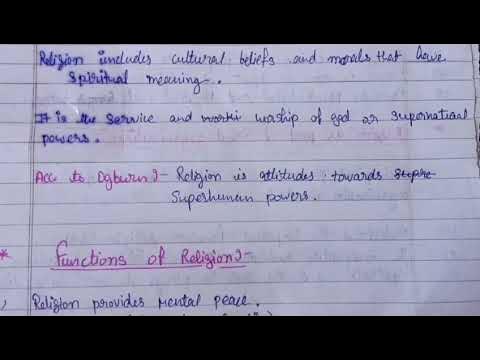 Religion includes cultural beliefs and morals that have
spiritual meaning-.
It is the service and worki worship of god or supernatural
powers.
Acc to Ogburn:- Religion is attitudes towards supre
Superhuman powers.
* Functions of Religion:-
Religion provides Mental peace.